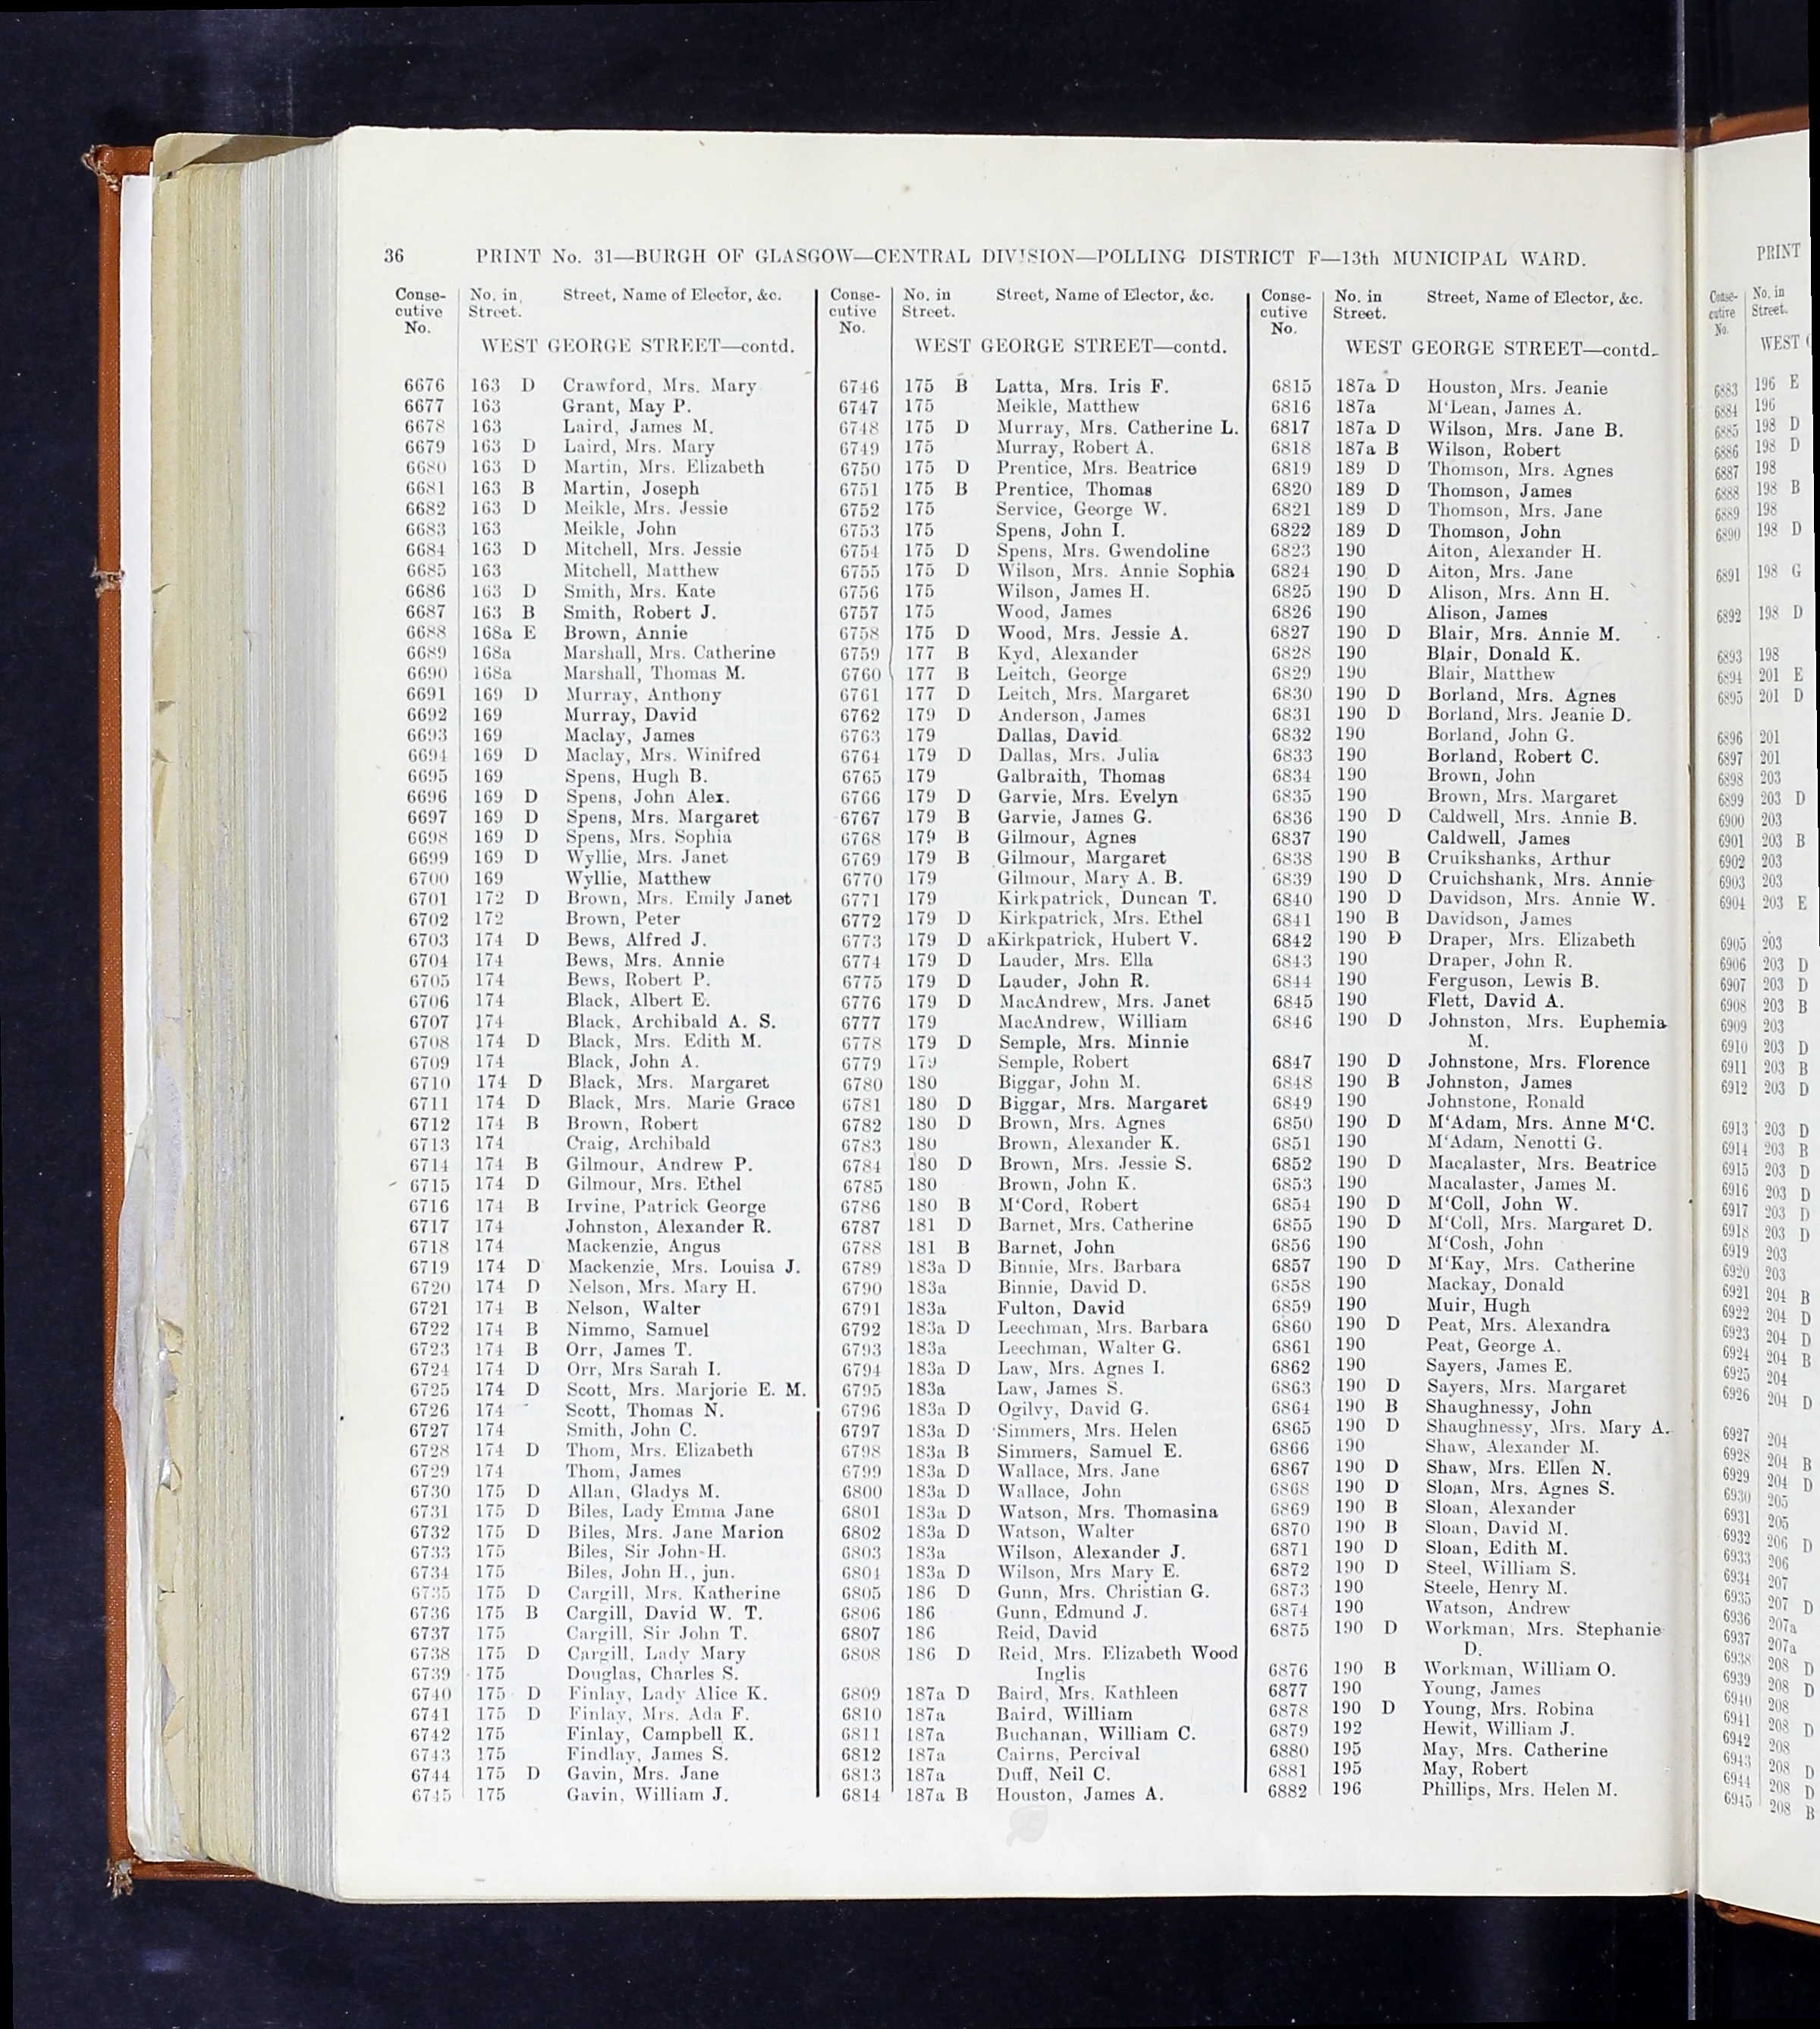 36 PRINT No. 31—BURGH OF GLASGOW—CENTRAL DIVISION—POLLING DISTRICT F—13th MUNICIPAL WARD.
Conse- No. in Street, Name of Elector, &c.
cutive Street.
No.
WEST GEORGE STREET—contd.
6676 163 D Crawford, Mrs. Mary
6677 163 Grant, May P.
6678 163 Laird, James M.
6679 163 D Laird, Mrs. Mary
6680 163 D Martin, Mrs. Elizabeth
6681 163 B Martin, Joseph
6682 163 D Meikle, Mrs. Jessie
6683 163 Meikle, John
6684 163 D Mitchell, Mrs. Jessie
6685 163 Mitchell, Matthew
6686 163 D Smith, Mrs. Kate
6687 163 B Smith, Robert J.
6688 168a E Brown, Annie
6689 168a Marshall, Mrs. Catherine
6690 168a Marshall, Thomas M.
6691 169 D Murray, Anthony
6692 169 Murray, David
6693 169 Maclay, James
6694 169 D Maclay, Mrs. Winifred
6695 169 Spens, Hugh B.
6696 169 D Spens, John Alex.
6697 169 D Spens, Mrs. Margaret
6698 169 D Spens, Mrs. Sophia
6699 169 D Wyllie, Mrs. Janet
6700 169 Wyllie, Matthew
6701 172 D Brown, Mrs. Emily Janet
6702 172 Brown, Peter
6703 174 D Bews, Alfred J.
6704 174 Bews, Mrs. Annie
6705 174 Bews, Robert P.
6706 174 Black, Albert E.
6707 174 Black, Archibald A. S.
6708 174 D Black, Mrs. Edith M.
6709 174 Black, John A.
6710 174 D Black, Mrs. Margaret
6711 174 D Black, Mrs. Marie Grace
6712 174 B Brown, Robert
6713 174 Craig, Archibald
6714 174 B Gilmour, Andrew P.
6715 174 D Gilmour, Mrs. Ethel
6716 174 B Irvine, Patrick George
6717 174 Johnston, Alexander R.
6718 174 Mackenzie, Angus
6719 174 D Mackenzie, Mrs. Louisa J.
6720 174 D Nelson, Mrs. Mary H.
6721 174 B Nelson, Walter
6722 174 B Nimmo, Samuel
6723 174 B Orr, James T.
6724 174 D Orr, Mrs Sarah I.
6725 174 D Scott, Mrs. Marjorie E. M.
6726 174 Scott, Thomas N.
6727 174 Smith, John C.
6728 174 D Thom, Mrs. Elizabeth
6729 174 Thom, James
6730 175 D Allan, Gladys M.
6731 175 D Biles, Lady Emma Jane
6732 175 D Biles, Mrs. Jane Marion
6733 175 Biles, Sir John H.
6734 175 Biles, John H., jun.
6735 175 D Cargill, Mrs. Katherine
6736 175 B Cargill, David W. T.
6737 175 Cargill, Sir John T.
6738 175 D Cargill, Lady Mary
6739 175 Douglas, Charles S.
6740 175 D Finlay, Lady Alice K.
6741 175 D Finlay, Mrs. Ada F.
6742 175 Finlay, Campbell K.
6743 175 Findlay, James S.
6744 175 D Gavin, Mrs. Jane
6745 175 Gavin, William J.
Conse- No. in Street, Name of Elector, &c.
cutive Street.
No.
WEST GEORGE STREET—contd.
6746 175 B Latta, Mrs. Iris F.
6747 175 Meikle, Matthew
6748 175 D Murray, Mrs. Catherine L.
6749 175 Murray, Robert A.
6750 175 D Prentice, Mrs. Beatrice
6751 175 B Prentice, Thomas
6752 175 Service, George W.
6753 175 Spens, John I.
6754 175 D Spens, Mrs. Gwendoline
6755 175 D Wilson, Mrs. Annie Sophia
6756 175 Wilson, James H.
6757 175 Wood, James
6758 175 D Wood, Mrs. Jessie A.
6759 177 B Kyd, Alexander
6760 177 B Leitch, George
6761 177 D Leitch, Mrs. Margaret
6762 179 D Anderson, James
6763 179 Dallas, David
6764 179 D Dallas, Mrs. Julia
6765 179 Galbraith, Thomas
6766 179 D Garvie, Mrs. Evelyn
6767 179 B Garvie, James G.
6768 179 B Gilmour, Agnes
6769 179 B Gilmour, Margaret
6770 179 Gilmour, Mary A. B.
6771 179 Kirkpatrick, Duncan T.
6772 179 D Kirkpatrick, Mrs. Ethel
6773 179 D aKirkpatrick, Hubert V.
6774 179 D Lauder, Mrs. Ella
6775 179 D Lauder, John R.
6776 179 D MacAndrew, Mrs. Janet
6777 179 MacAndrew, William
6778 179 D Semple, Mrs. Minnie
6779 179 Semple, Robert
6780 180 Biggar, John M.
6781 180 D Biggar, Mrs. Margaret
6782 180 D Brown, Mrs. Agnes
6783 180 Brown, Alexander K.
6784 180 D Brown, Mrs. Jessie S.
6785 180 Brown, John K.
6786 180 B M'Cord, Robert
6787 181 D Barnet, Mrs. Catherine
6788 181 B Barnet, John
6789 183a D Binnie, Mrs. Barbara
6790 183a Binnie, David D.
6791 183a Fulton, David
6792 183a D Leechman, Mrs. Barbara
6793 183a Leechman, Walter G.
6794 183a D Law, Mrs. Agnes I.
6795 183a Law, James S.
6796 183a D Ogilvy, David G.
6797 183a D Simmers, Mrs. Helen
6798 183a B Simmers, Samuel E.
6799 183a D Wallace, Mrs. Jane
6800 183a D Wallace, John
6801 183a D Watson, Mrs. Thomasina
6802 183a D Watson, Walter
6803 183a Wilson, Alexander J.
6804 183a D Wilson, Mrs Mary E.
6805 186 D Gunn, Mrs. Christian G.
6806 186 Gunn, Edmund J.
6807 186 Reid, David
6808 186 D Reid, Mrs. Elizabeth Wood
Inglis
6809 187a D Baird, Mrs. Kathleen
6810 187a Baird, William
6811 187a Buchanan, William C.
6812 187a Cairns, Percival
6813 187a Duff, Neil C.
6814 187a B Houston, James A.
Conse- No. in Street, Name of Elector, &c.
cutive Street.
No.
WEST GEORGE STREET—contd.
6815 187a D Houston, Mrs. Jeanie
6816 187a M'Lean, James A.
6817 187a D Wilson, Mrs. Jane B.
6818 187a B Wilson, Robert
6819 189 D Thomson, Mrs. Agnes
6820 189 D Thomson, James
6821 189 D Thomson, Mrs. Jane
6822 189 D Thomson, John
6823 190 Aiton, Alexander H.
6824 190 D Aiton, Mrs. Jane
6825 190 D Alison, Mrs. Ann H.
6826 190 Alison, James
6827 190 D Blair, Mrs. Annie M.
6828 190 Blair, Donald K.
6829 190 Blair, Matthew
6830 190 D Borland, Mrs. Agnes
6831 190 D Borland, Mrs. Jeanie D.
6832 190 Borland, John G.
6833 190 Borland, Robert C.
6834 190 Brown, John
6835 190 Brown, Mrs. Margaret
6836 190 D Caldwell, Mrs. Annie B.
6837 190 Caldwell, James
6838 190 B Cruikshanks, Arthur
6839 190 D Cruichshank, Mrs. Annie
6840 190 D Davidson, Mrs. Annie W.
6841 190 B Davidson, James
6842 190 D Draper, Mrs. Elizabeth
6843 190 Draper, John R.
6844 190 Ferguson, Lewis B.
6845 190 Flett, David A.
6846 190 D Johnston, Mrs. Euphemia
M.
6847 190 D Johnstone, Mrs. Florence
6848 190 B Johnston, James
6849 190 Johnstone, Ronald
6850 190 D M'Adam, Mrs. Anne M'C.
6851 190 M'Adam, Nenotti G.
6852 190 D Macalaster, Mrs. Beatrice
6853 190 Macalaster, James M.
6854 190 D M'Coll, John W.
6855 190 D M'Coll, Mrs. Margaret D.
6856 190 M'Cosh, John
6857 190 D M'Kay, Mrs. Catherine
6858 190 Mackay, Donald
6859 190 Muir, Hugh
6860 190 D Peat, Mrs. Alexandra
6861 190 Peat, George A.
6862 190 Sayers, James E.
6863 190 D Sayers, Mrs. Margaret
6864 190 B Shaughnessy, John
6865 190 D Shaughnessy, Mrs. Mary A.
6866 190 Shaw, Alexander M.
6867 190 D Shaw, Mrs. Ellen N.
6868 190 D Sloan, Mrs. Agnes S.
6869 190 B Sloan, Alexander
6870 190 B Sloan, David M.
6871 190 D Sloan, Edith M.
6872 190 D Steel, William S.
6873 190 Steele, Henry M.
6874 190 Watson, Andrew
6875 190 D Workman, Mrs. Stephanie
D.
6876 190 B Workman, William O.
6877 190 Young, James
6878 190 D Young, Mrs. Robina
6879 192 Hewit, William J.
6880 195 May, Mrs. Catherine
6881 195 May, Robert
6882 196 Phillips, Mrs. Helen M.
PRINT
Conse- No. in
cutive Street.
No.
WEST
6883 196 E
6884 196
6885 198 D
6886 198 D
6887 198
6888 198 B
6889 198
6890 198 D
6891 198 G
6892 198 D
6893 198
6894 201 E
6895 201 D
6896 201
6897 201
6898 203
6899 203 D
6900 203
6901 203 B
6902 203
6903 203
6904 203 E
6905 203
6906 203 D
6907 203 D
6908 203 B
6909 203
6910 203 D
6911 203 B
6912 203 D
6913 203 D
6914 203 B
6915 203 D
6916 203 D
6917 203 D
6918 203 D
6919 203
6920 203
6921 204 B
6922 204 D
6923 204 D
6924 204 B
6925 204
6926 204 D
6927 204
6928 204 B
6929 204 D
6930 205
6931 205
6932 206 D
6933 206
6934 207
6935 207 D
6936 207a
6937 207a
6938 208 D
6939 208 D
6940 208
6941 208 D
6942 208
6943 208 D
6944 208 D
6945 208 B